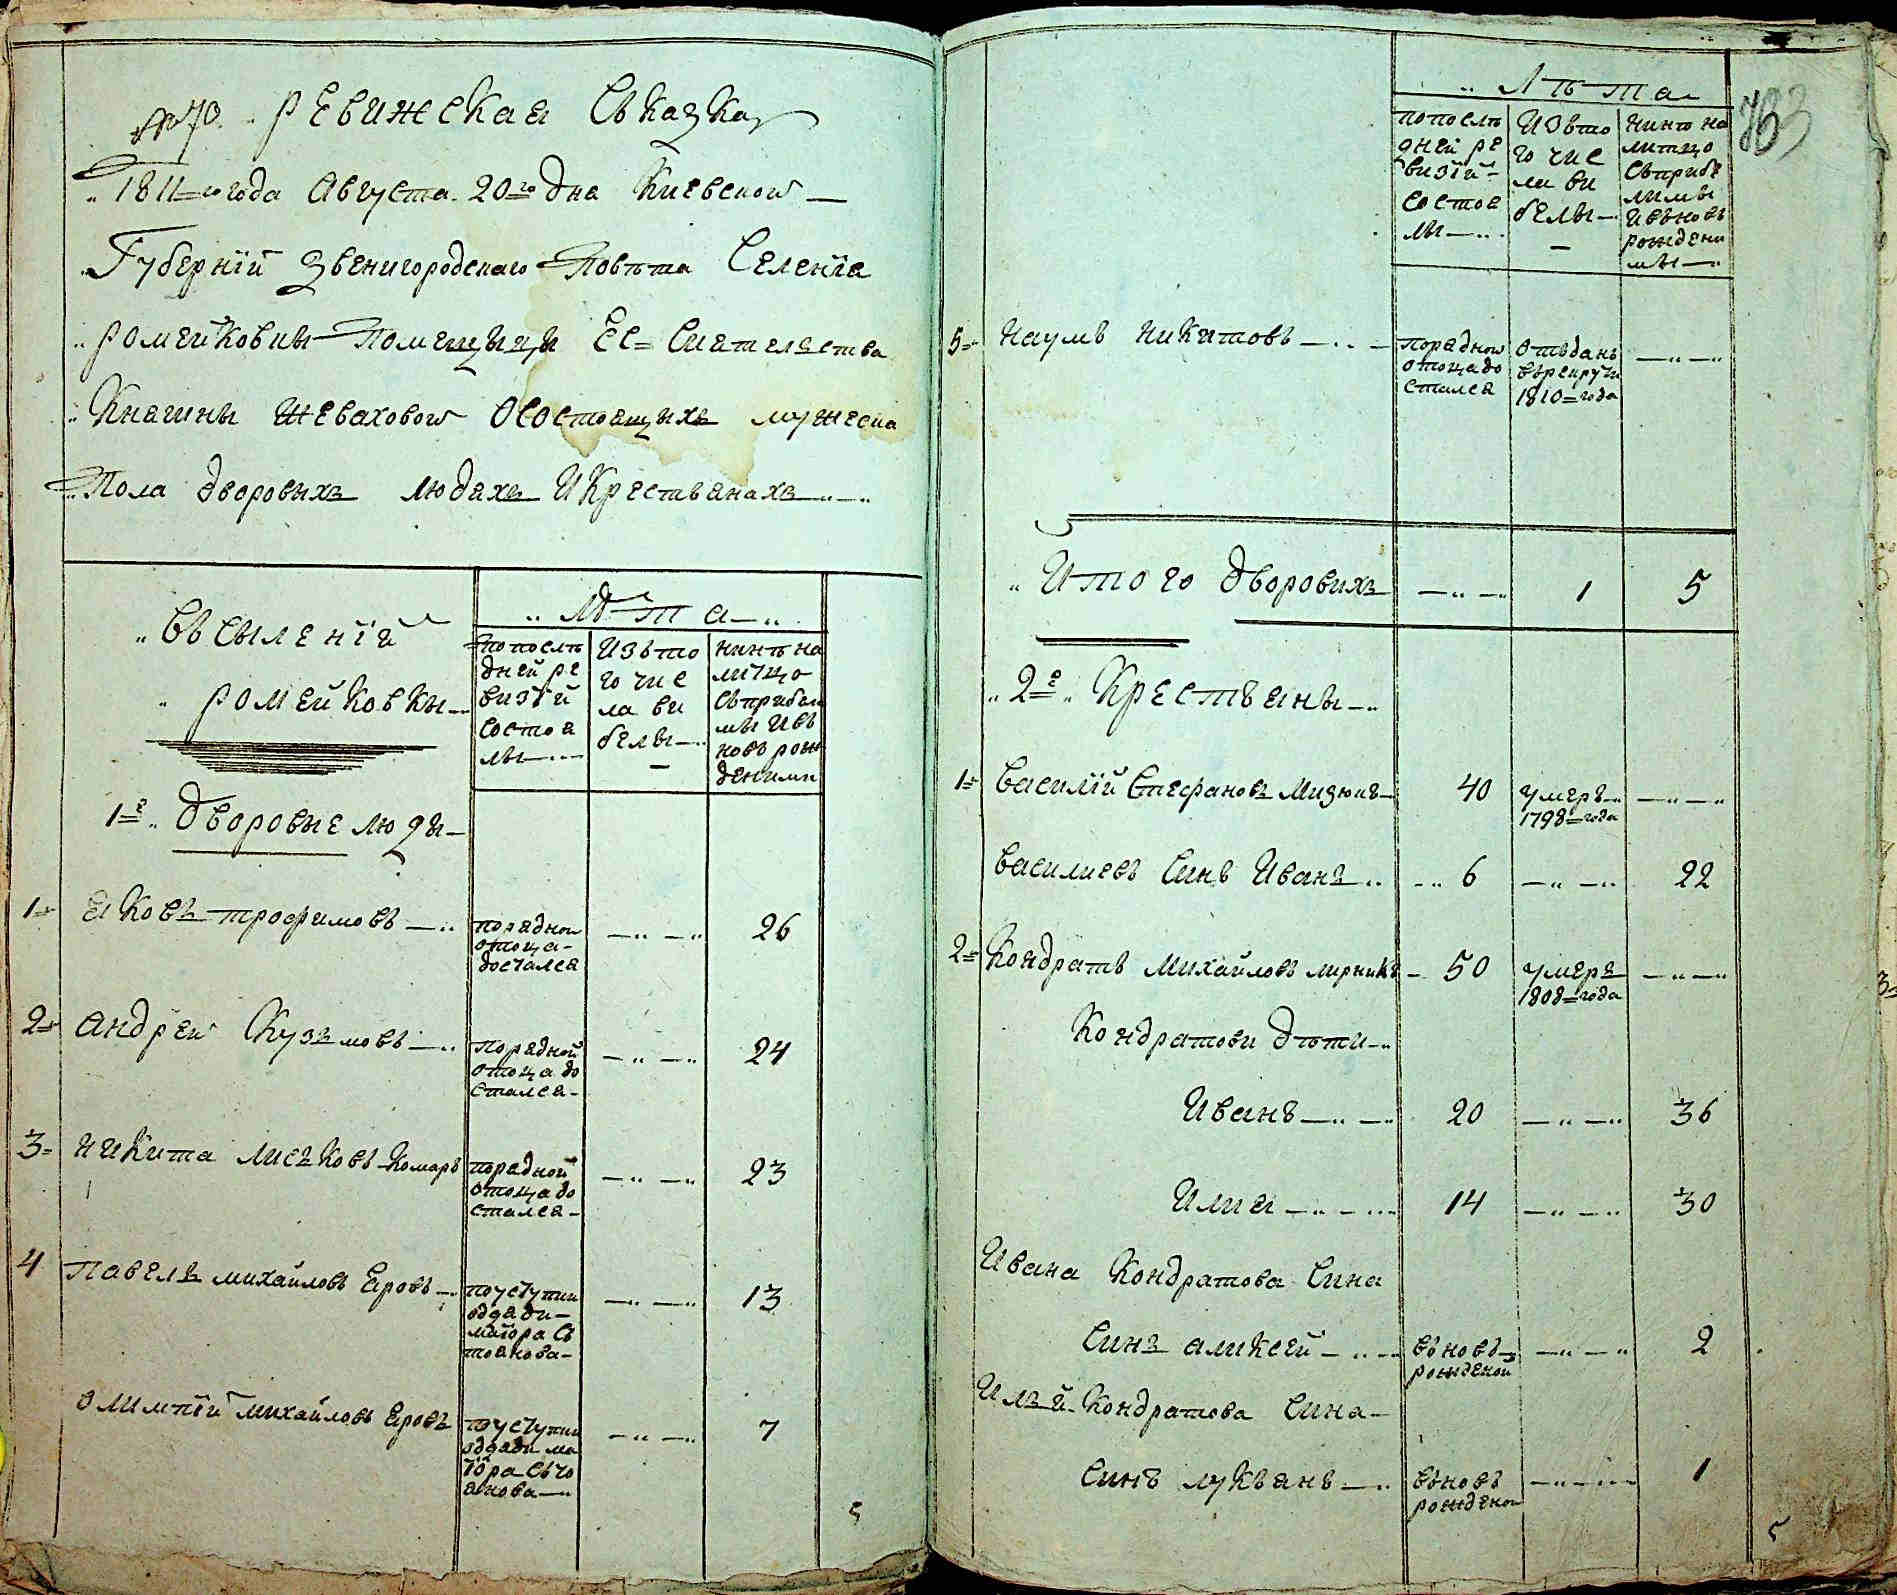 № 70. Ревижская Ськазка
1811=го года Августа 20=го дна Киевской
Губернїй Звенигородскаго Повѣта Селенїа
Ромейковки Помещыцы Ее= Сиятелства
Кнагины Жеваховой О состоащыхъ мужеска
Пола дворовыхъ людахъ И Крестьанахъ
Въ сыленїй
Ромейковкы
Лѣта
попослѣ
дней ре
визїй
состоа
лы
Изъто
го чис
ла ви
белы
нинѣ на
литцо
съприбы
лы и въ
новь рож
деними
1=е Дворовые люды
1= Яковъ трофимовъ
пораднои
отоца
достался
26
2= Андрей Кузьмовъ
порадной
отоца до
стался
24
3= Никита лиськовъ Комаръ
порадной
отоца до
стался
23
4 Павелъ михайловъ Яровъ
поуступки
оддади
маїора Съ
тоянова
13
Олимпїй михайловъ Яровъ
поуступки
оддади ма
їора Съто
янова
7
5
763
Лѣта
попослѣ
дней ре
визїй
состоя
лы
Изъто
го чис
ла ви
белы
нинѣ на
литцо
съприбы
лимы
и вьновь
рождени
мы
5= Наумъ Никитовъ
порадной
отоца до
стался
отъданъ
въ рекруты
1810=года
Итого дворовихъ
1
5
2=е Крестьаны
1= Василїй Стефановъ Мизюкъ
40
умеръ
1798=года
Василиевъ Синъ Иванъ
6
22
2= Кондратъ Михайловъ лирникъ
50
умеръ
1808=года
Кондратови Дѣти
Иванъ
20
36
Илия
14
30
Ивана Кондратова Сина
Синъ аликсей
въновь
рожденой
2
Ильи Кондратова Сина
Синъ лукьянъ
въновь
рожденой
1
5